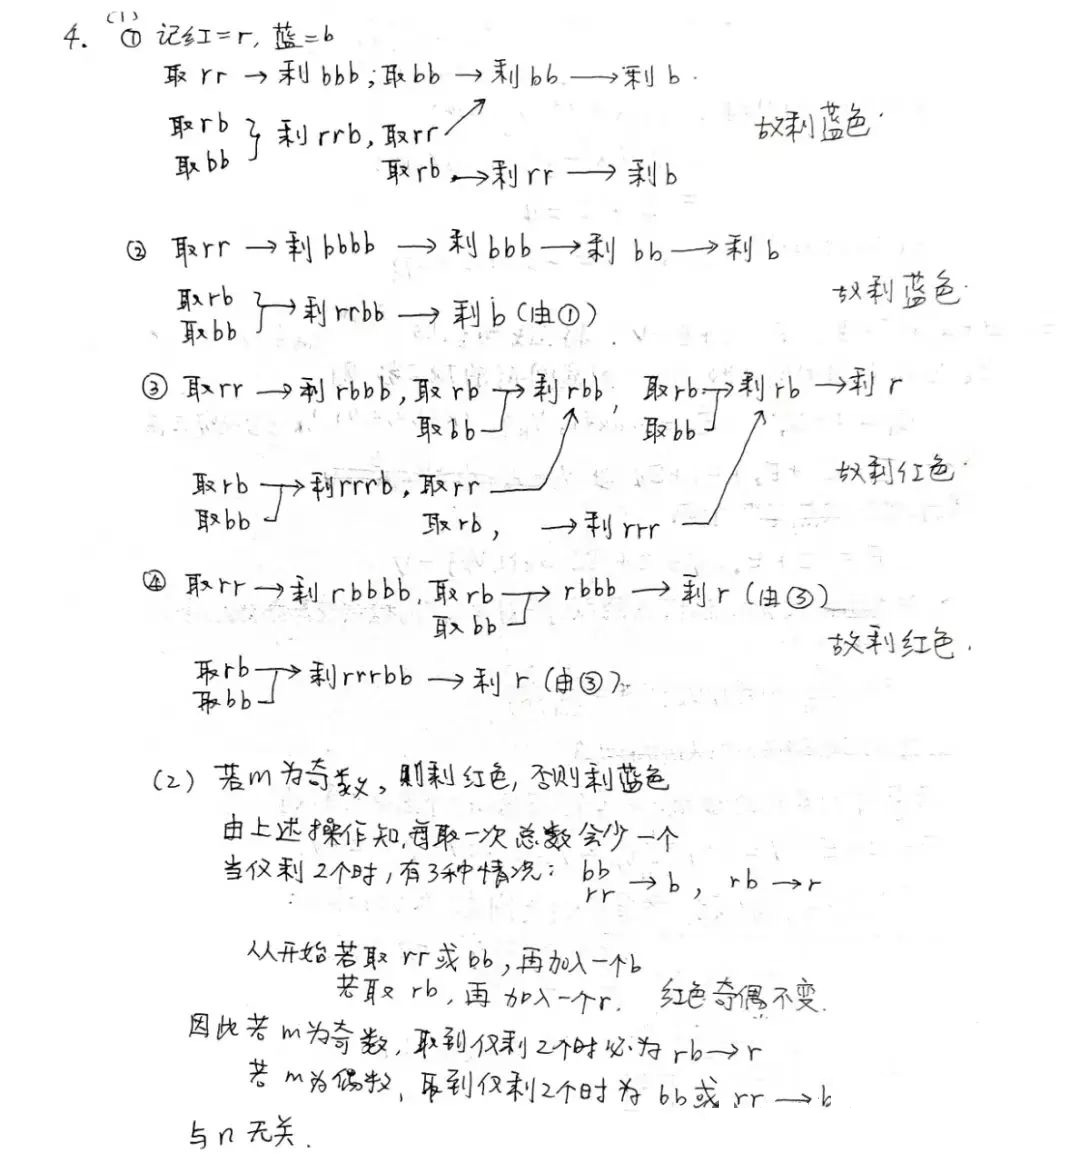 4. (1) ① 记红=r, 蓝=b
取 rr → 剩 bbb; 取 bb → 剩 bb → 剩 b.
取 rb } 剩 rrb, 取 rr
取 bb
取 rb → 剩 rr → 剩 b
故剩蓝色.
② 取 rr → 剩 bbbb → 剩 bbb → 剩 bb → 剩 b
取 rb → 剩 rrbb → 剩 b (由①)
取 bb
故剩蓝色.
③ 取 rr → 剩 rbbb, 取 rb → 剩 rbb, 取 rb → 剩 rb → 剩 r
取 bb 取 bb
取 rb → 剩 rrrb, 取 rr
取 bb 取 rb, → 剩 rrr
故剩红色.
④ 取 rr → 剩 rbbbb, 取 rb → rbbb → 剩 r (由③)
取 bb
故剩红色.
取 rb → 剩 rrrbb → 剩 r (由③).
取 bb
(2) 若m为奇数, 则剩红色, 否则剩蓝色
由上述操作知, 每取一次总数会少一个
当仅剩2个时, 有3种情况: bb
rr → b, rb → r
从开始若取 rr 或 bb, 再加入一个b
若取 rb, 再加入一个r. 红色奇偶不变.
因此若m为奇数, 取到仅剩2个时必为 rb → r
若m为偶数, 取到仅剩2个时为 bb 或 rr → b
与n无关.